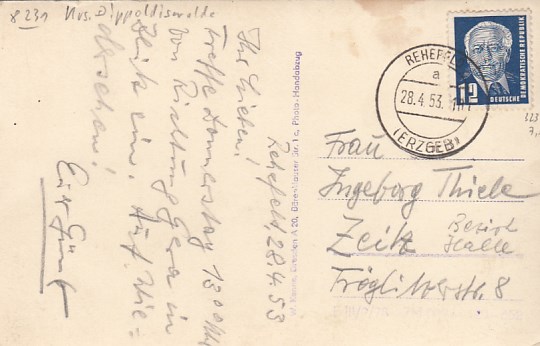 8231 Krs. Dippoldiswalde
Rehefeld, 28.4.53
Ihr Lieben!
Treffe Donnerstag 13 00 Uhr
von Richtung Gera in
Zeitz ein. Auf Wie-
dersehen!
Euer Günt
Dresden A 20, Str. 1 c, Photo-Handabzug
REHEFELD
a
28.4.53.
(ERZGEB)
DEUTSCHE
DEMOKRATISCHE REPUBLIK
12
323
Frau
Ingeborg Thiele
Zeitz Bezirk
Halle
Tröglitzerstr. 8